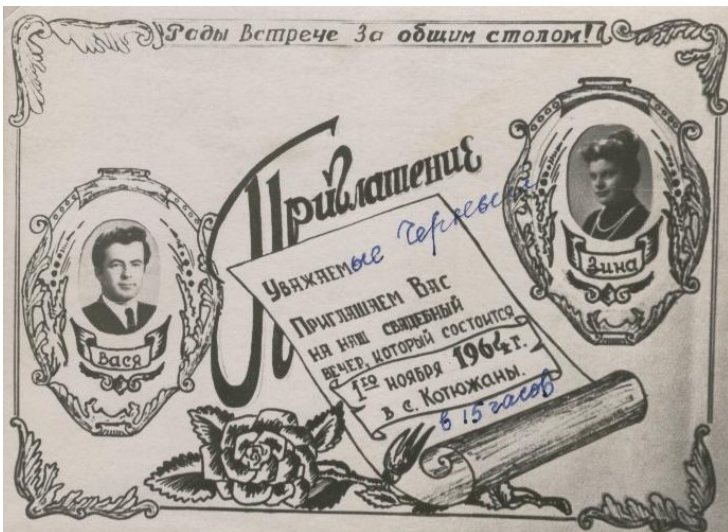 Рады Встрече За общим столом!
Приглашение
Уважаемые
Приглашаем Вас
на наш свадебный
вечер, который состоится
1го ноября 1964 г.
в с. Котюжаны.
в 15 часов
Вася
Зина